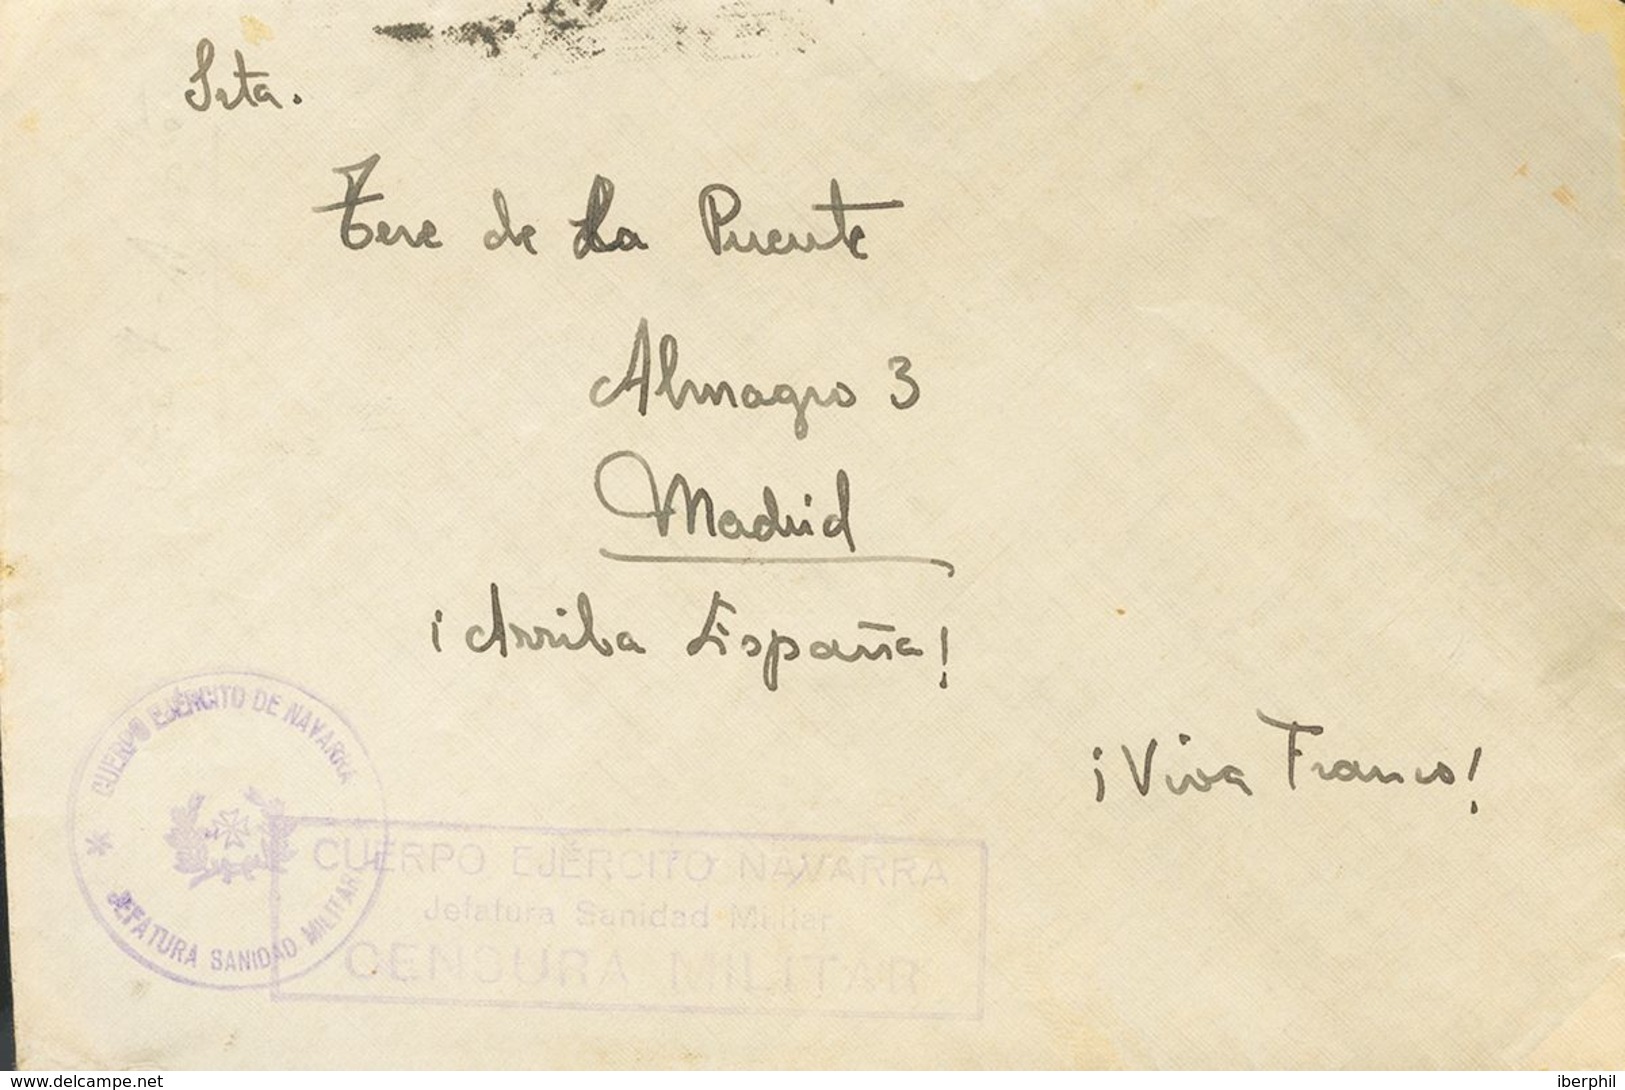 Srta.
Tere de La Puente
Almagro 3
Madrid
¡Arriba España!
¡Viva Franco!
CUERPO EJÉRCITO DE NAVARRA
* JEFATURA SANIDAD MILITAR
CUERPO EJÉRCITO NAVARRA
Jefatura Sanidad Militar
CENSURA MILITAR
www.delcampe.net
iberphil